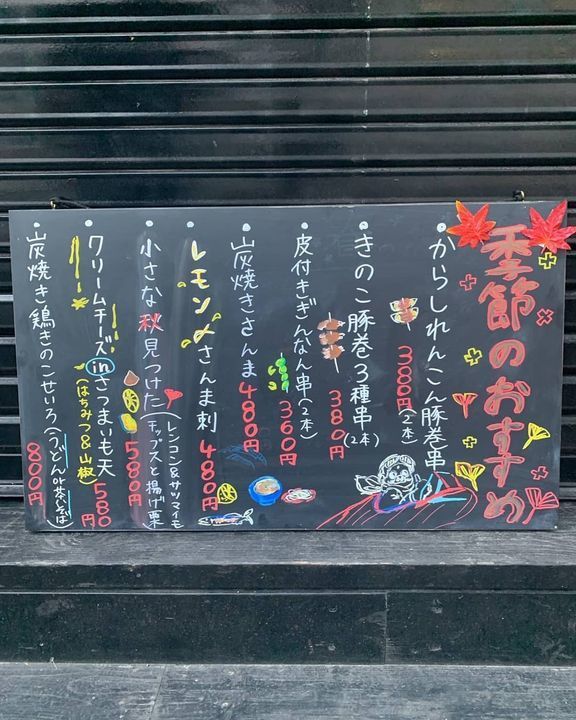 季節のおすすめ
・からしれんこん豚巻串
380円(2本)
・きのこ豚巻3種串(2本)
380円
・皮付きぎんなん串(2本)
360円
・炭焼きさんま 480円
・レモン〆さんま刺 480円
・小さな秋見つけた(レンコン&サツマイモ
チップスと揚げ栗
580円
・クリームチーズinさつまいも天
(はちみつ&山椒)
580円
・炭焼き鶏きのこせいろ(うどんor茶そば)
800円